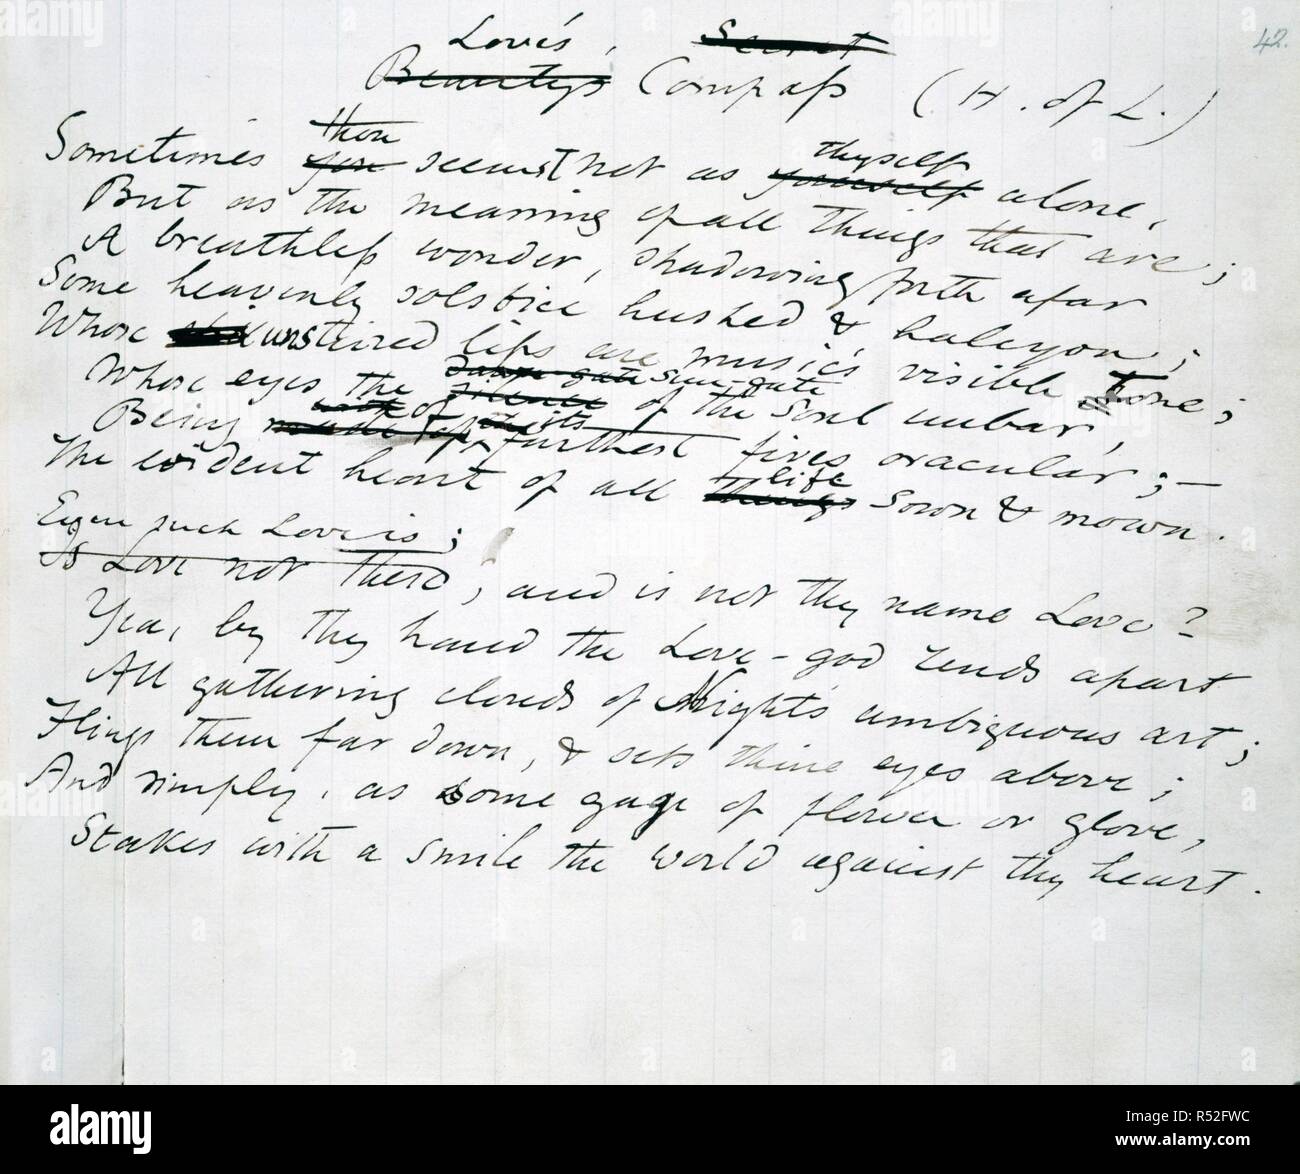 Love's, Secret 42.
Beauty's Compass (H. of L.)
thou thyself
Sometimes you seemst not as yourself alone,
But as the meaning of all things that are;
A breathless wonder, shadowing forth afar
Some heavenly solstice hushed & halcyon;
Whose unstirred lips are music's visible Tone;
sun-gate
Whose eyes the silence of the Soul unbar,
of its
Being furthest fires oracular; —
life
The evident heart of all things sown & mown.
Even such Love is;
Is Love not there; and is not thy name Love?
Yea, by thy hand the Love-god rends apart
All gathering clouds of Night's ambiguous art;
Flings them far down, & sets thine eyes above;
And simply, as some gage of flower or glove,
Stakes with a smile the world against thy heart.
alamy
alamy stock photo
R52FWC
www.alamy.com